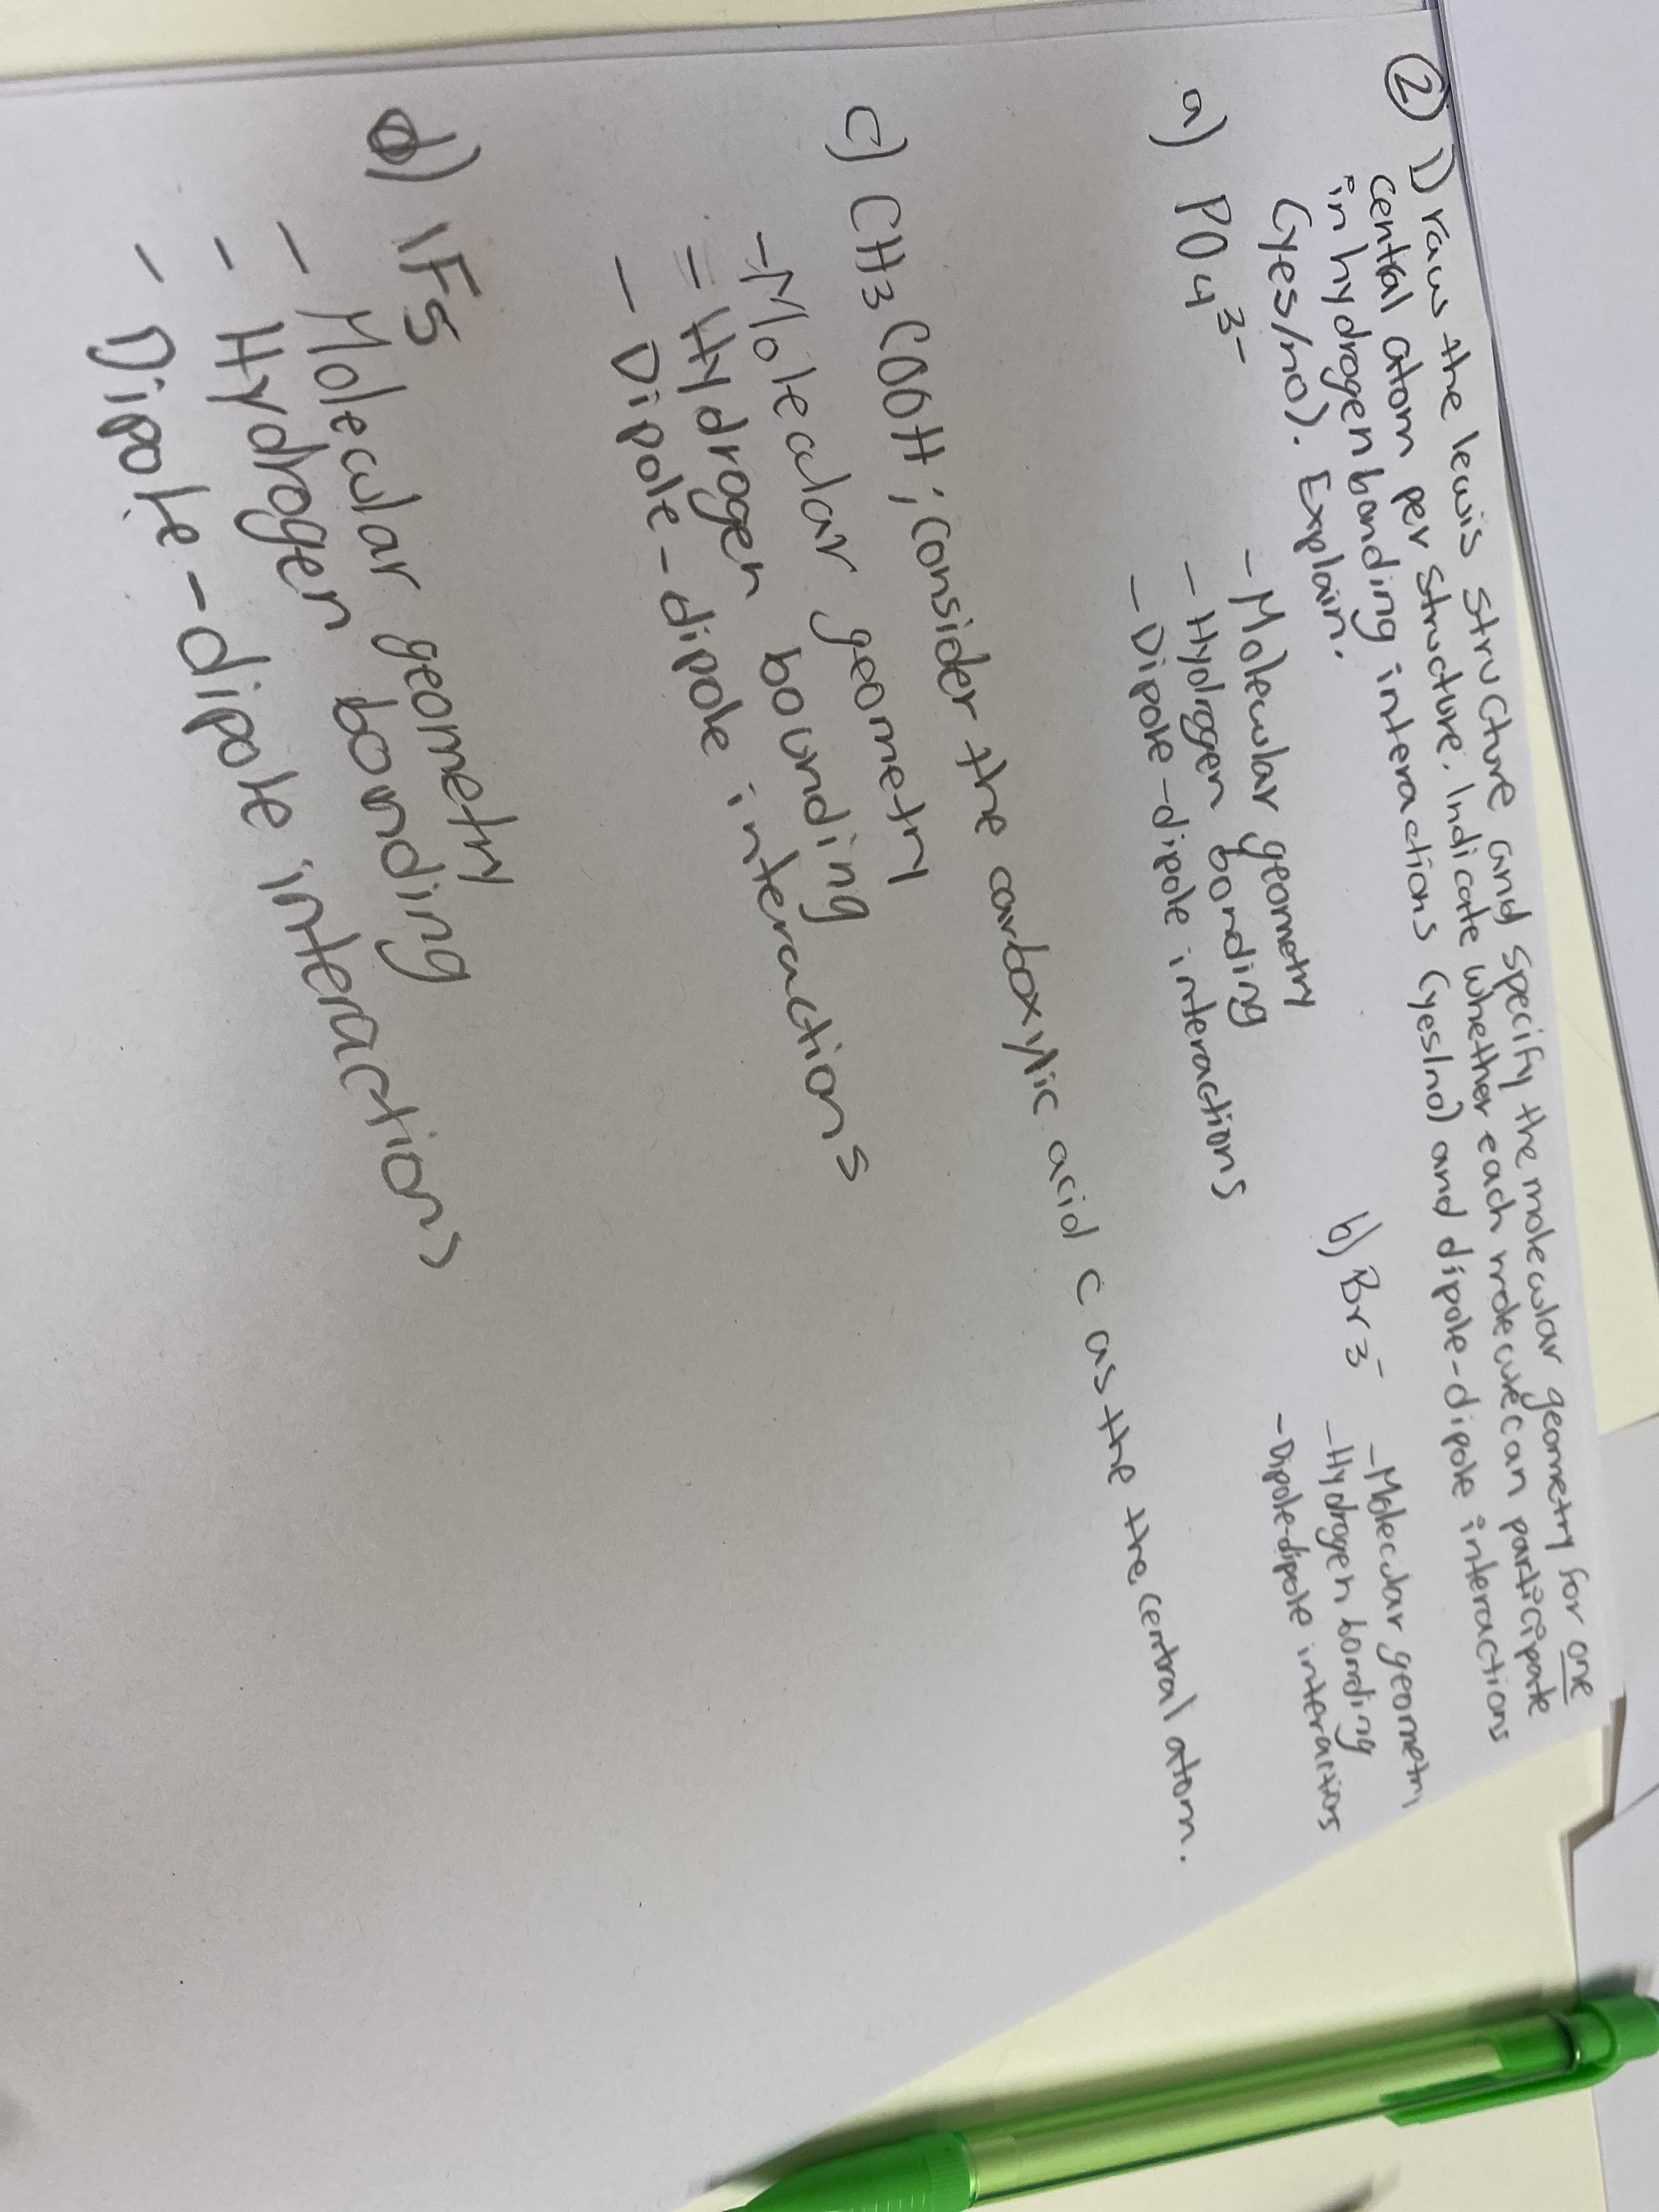 ② Draw the lewis structure and specify the molecular geometry for one
central atom per structure. Indicate whether each molecule can participate
in hydrogen bonding interactions (yes/no) and dipole-dipole interactions
(yes/no). Explain.
a) PO₄³⁻
- Molecular geometry
- Hydrogen bonding
- Dipole-dipole interactions
b) Br₃⁻
- Molecular geometry
- Hydrogen bonding
- Dipole-dipole interactions
c) CH₃COOH; consider the carboxylic acid C as the central atom.
- Molecular geometry
- Hydrogen bounding
- Dipole-dipole interactions
d) IF₅
- Molecular geometry
- Hydrogen bonding
- Dipole-dipole interactions